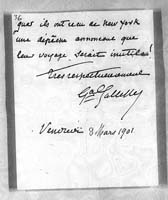 36
qu'ils ont reçu de New York
une dépêche annonçant que
leur voyage serait inutile !
Très respectueusement
Vendredi 8 Mars 1901